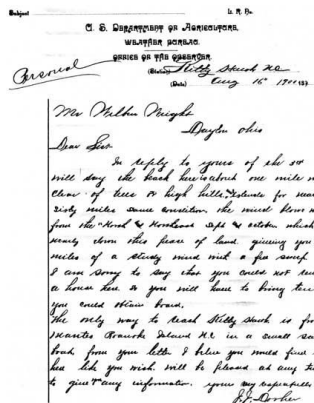 Subject L. R. No.
U. S. DEPARTMENT OF AGRICULTURE,
WEATHER BUREAU.
OFFICE OF THE OBSERVER.
Personal
(Station) Kitty Hawk NC
(Date) Aug 16 1900
Mr Wilbur Wright
Dayton Ohio
Dear Sir
In reply to yours of the 3rd
will say the beach here is about one mile
clear of trees or high hills. Extends for near
sixty miles same condition. the wind blows
from the North & Northeast Sept & October which
nearly down this piece of land. giving you
miles of a steady wind with a free sweep
I am sorry to say that you could not
a house here. so you will have to bring
you could obtain board.
the only way to reach Kitty Hawk is
Manteo Roanoke Island N.C in a small
boat from your letter I believe you would find
here like you wish. will be pleased at any
to give any information. yours respectfully
J.J. Dosher